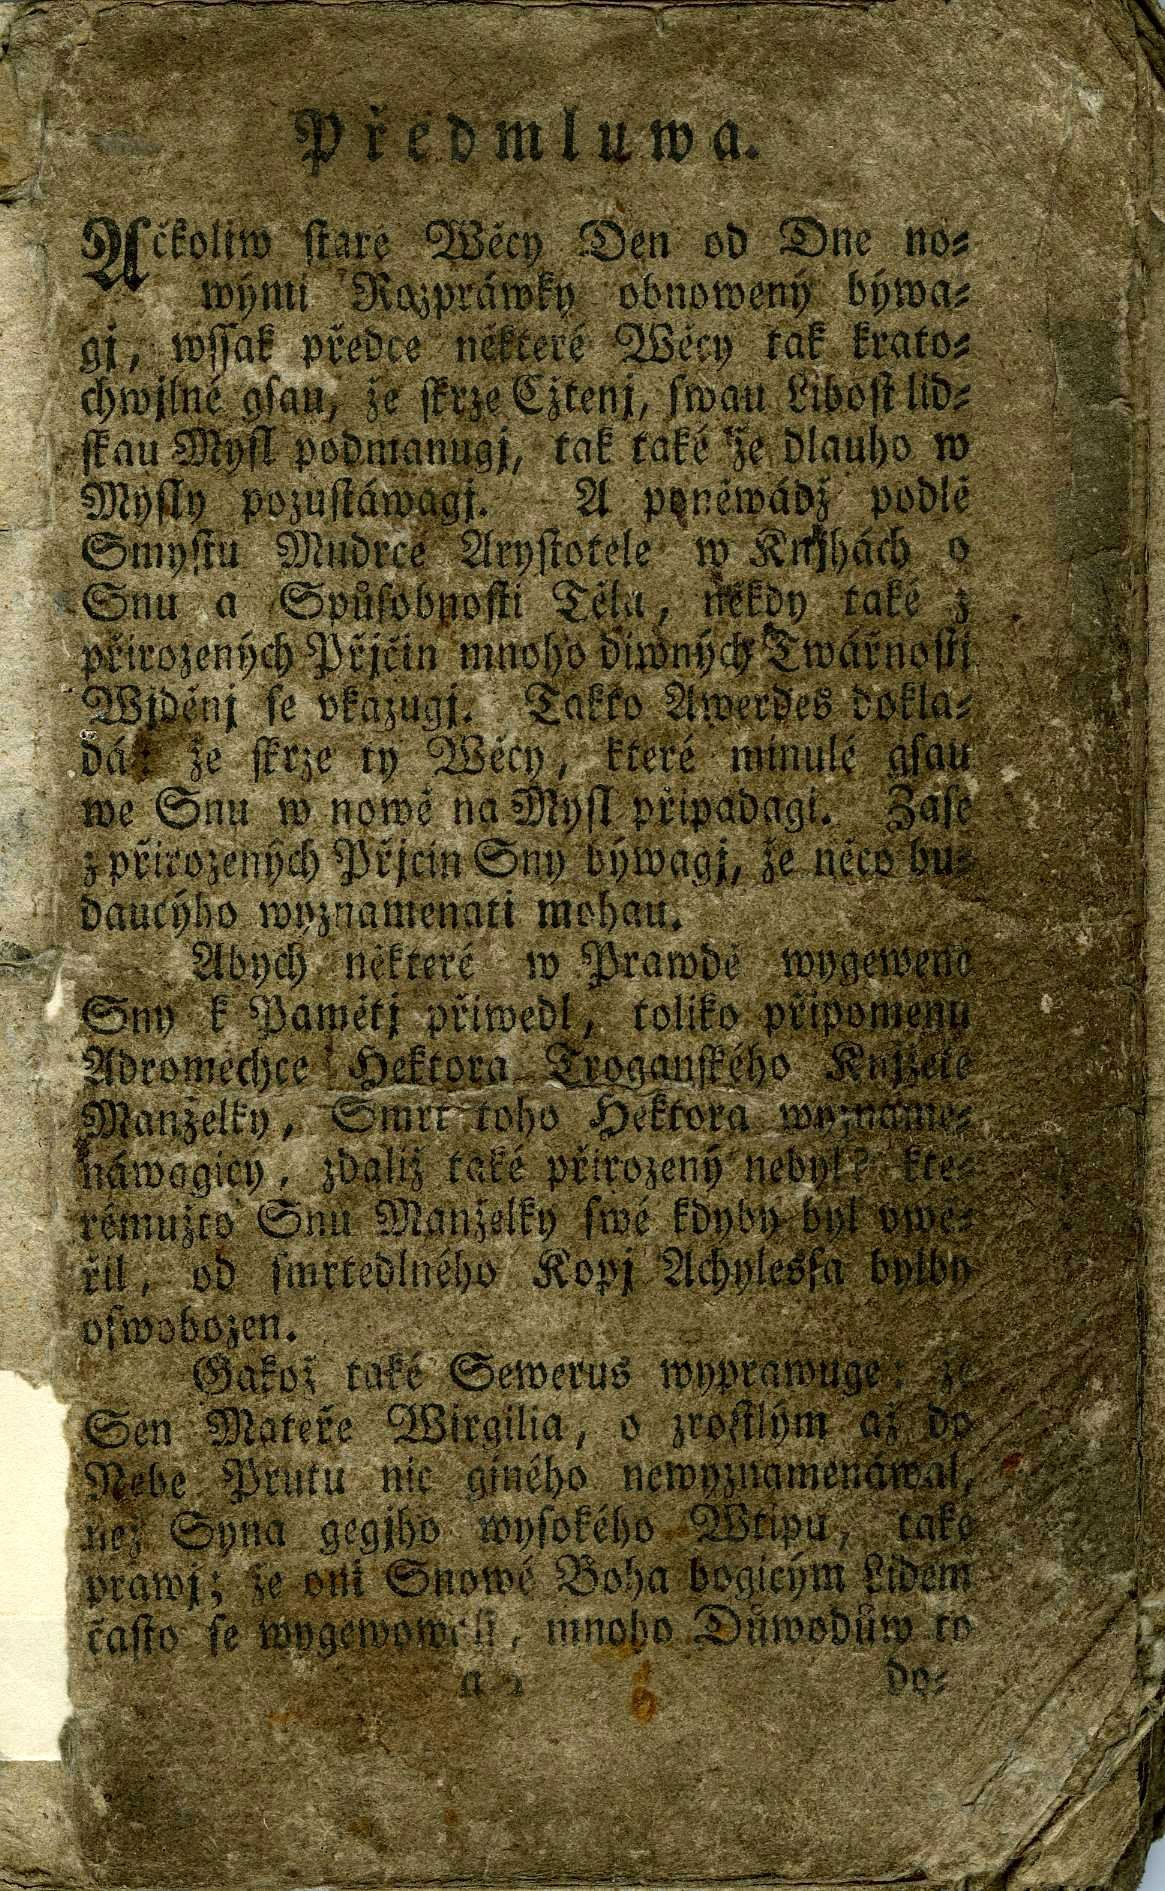 Předmluwa.
Ačkoliw staré Wěcy Den od Dne no-
wými Rozpráwky obnowený býwa-
gj, wssak předce některé Wěcy tak krato-
chwjlné gsau, že skrze Cžtenj, swau Libost lid-
skau Mysl podmanugj, tak také že dlauho w
Mysly pozustáwagj. A poněwádž podlé
Smyslu Mudrce Arystotele w Knjhách o
Snu a Spůsobnosti Těla, někdy také z
přirozených Přjčin mnoho diwných Twářnosti
Wjděnj se vkazugj. Takto Awerdes dokla-
dá: že skrze ty Wěcy, které minulé gsau
we Snu w nowě na Mysl připadagi. Zase
z přirozených Přjcin Sny býwagj, že něco bu-
daucýho wyznamenati mohau.
Abych některé w Prawdě wygewené
Sny k Pamětj přiwedl, toliko připomenu
Adromechce Hektora Troganského Knjžete
Manželky, Smrt toho Hektora wyzname-
náwagicy, zdaliž také přirozený nebyl? kte-
rémužto Snu Manželky swé kdyby byl vwě-
řil, od smrtedlného Kopj Achylessa bylby
oswobozen.
Gakož také Sewerus wyprawuge, že
Sen Mateře Wirgilia, o zrostlým až do
Nebe Prutu nic giného newyznamenáwal,
než Syna gegjho wysokého Wtipu, také
prawj; že oni Snowé Boha bogicým Lidem
často se wygewowali, mnoho Důwodůw to
a 2 do-